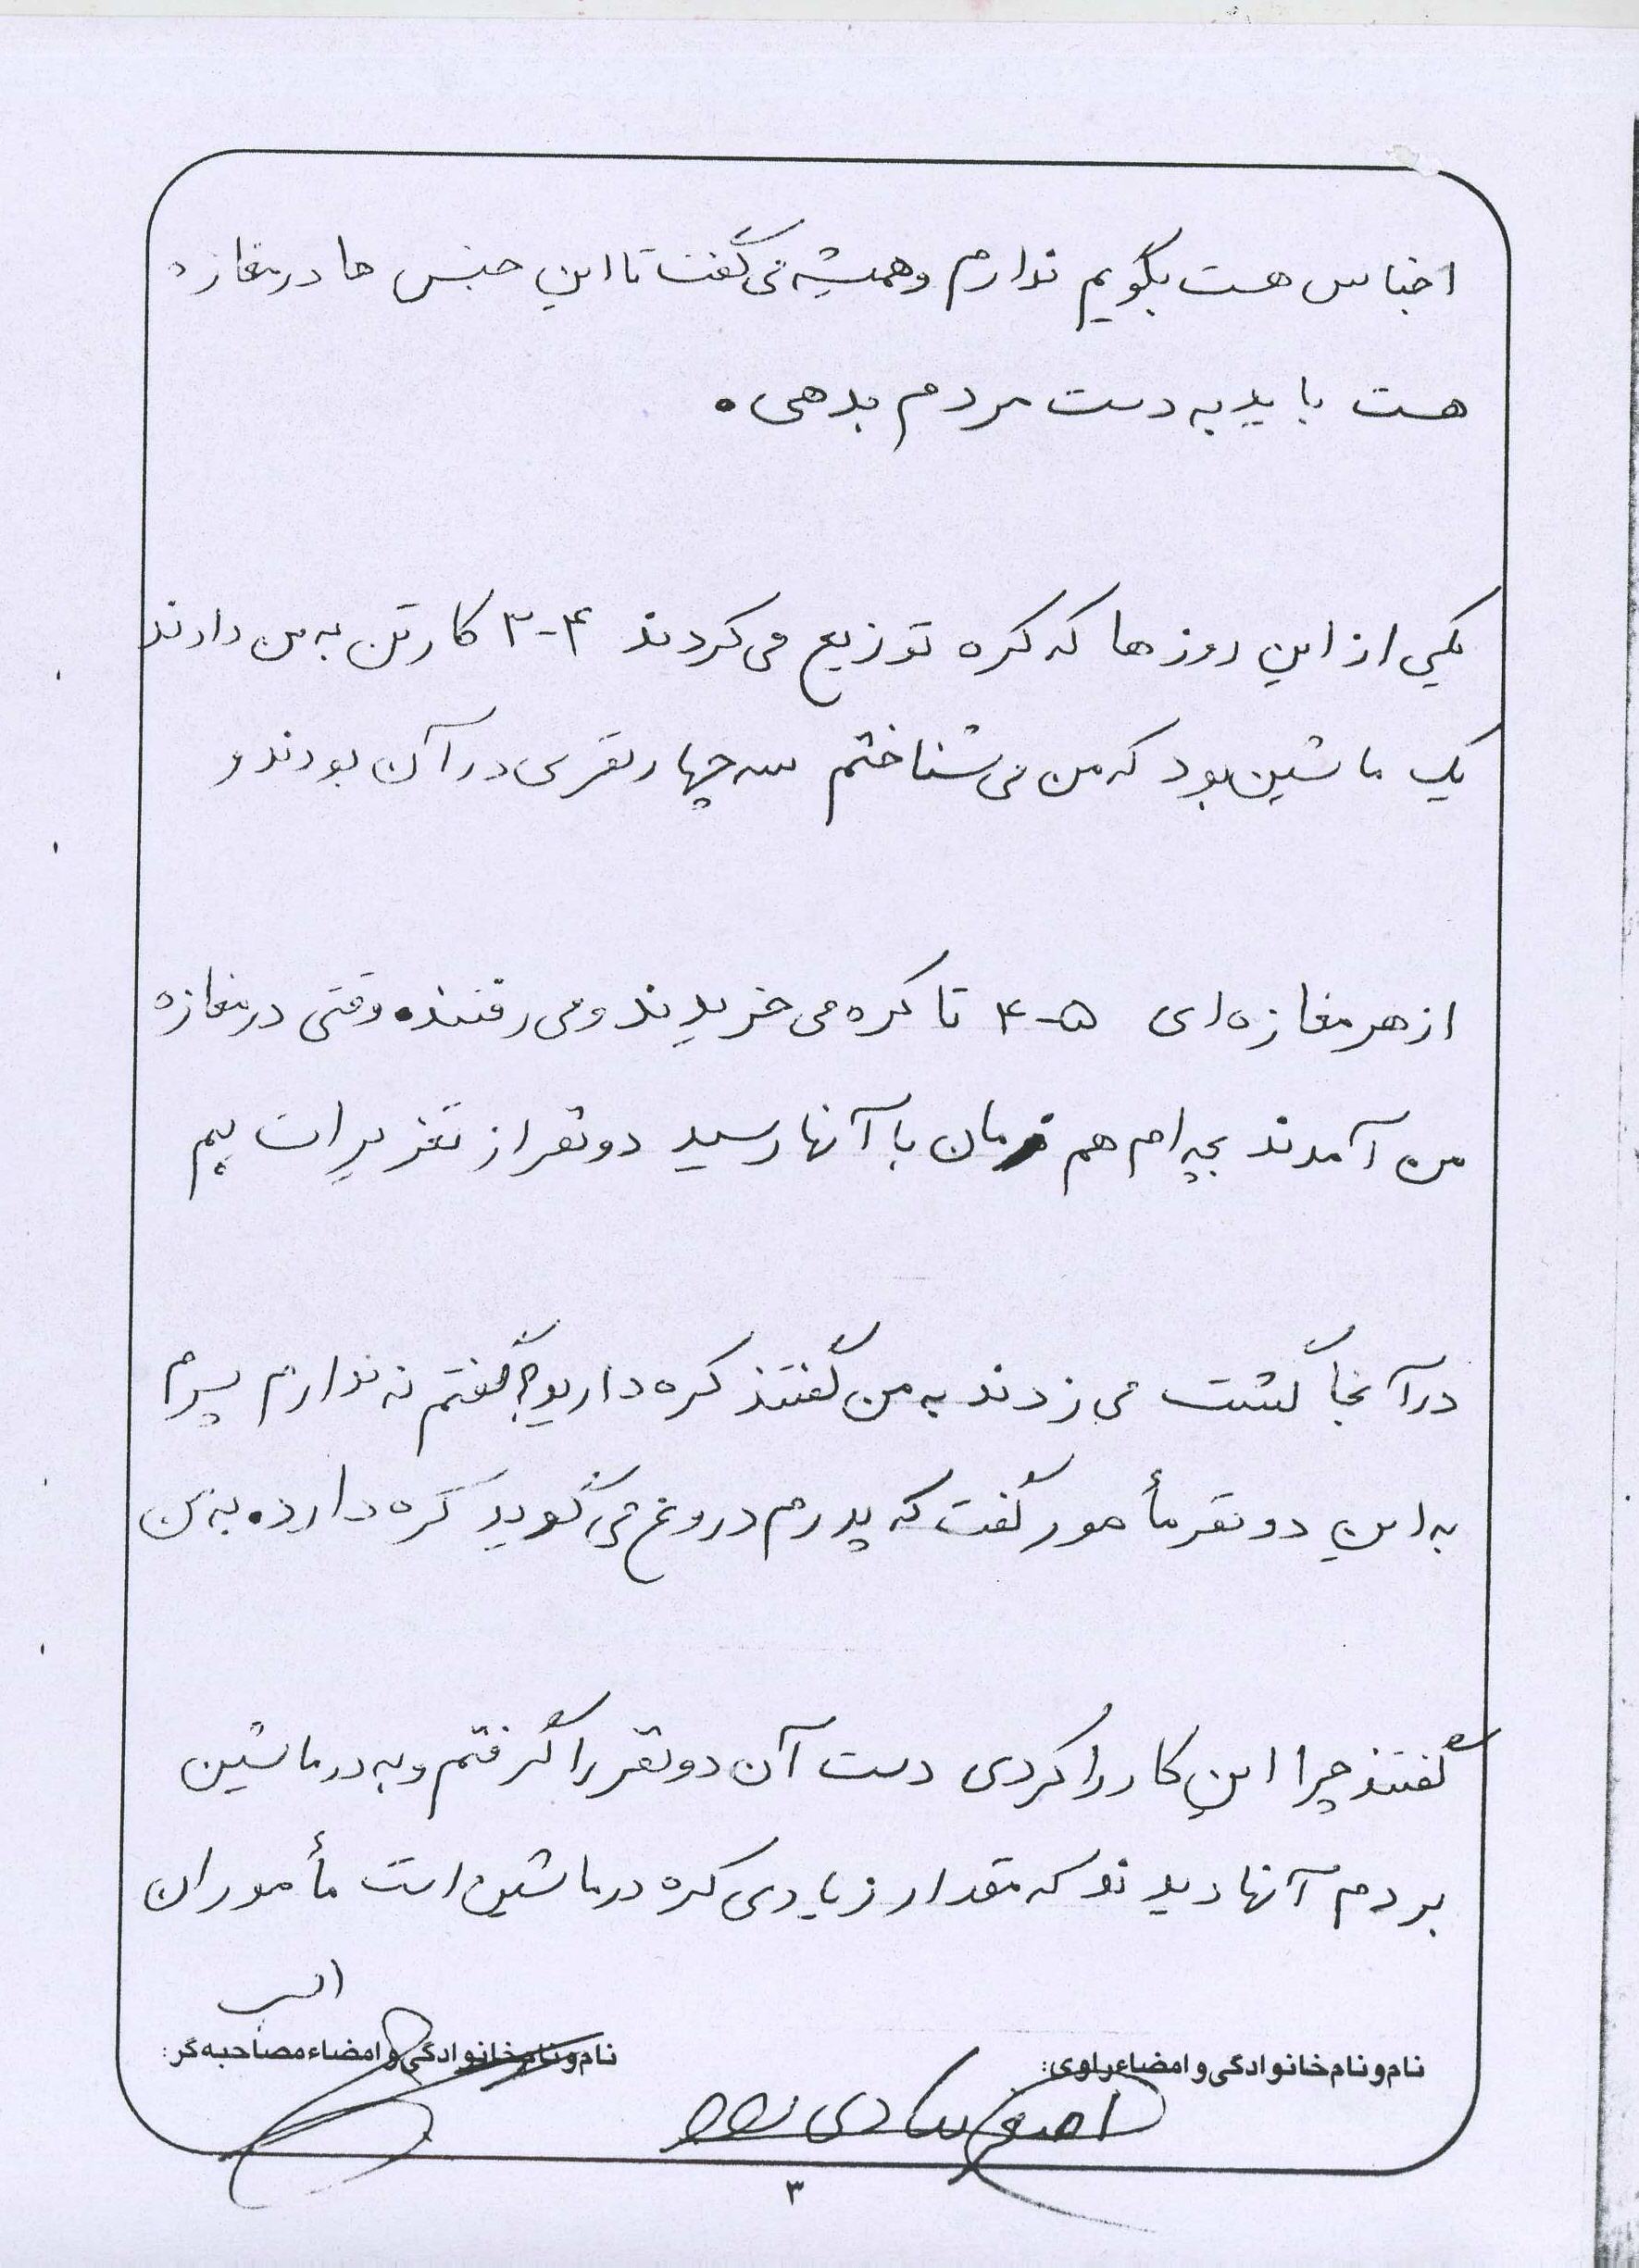 اجناس هست بگویم ندارم و همیشه می گفت تا این جنس ها در مغازه
هست باید به دست مردم بدهی.
یکی از این روزها که کره توزیع می کردند ۴-۳ کارتن به من دادند
یک ماشین بود که من می شناختم سه چهار نفری در آن بودند و
از هر مغازه ای ۵-۴ تا کره می خریدند و می رفتند. وقتی در مغازه
من آمدند بچه ام هم زمان با آنها رسید دو نفر از تعزیرات بم
در آنجا گشت می زدند به من گفتند کره دارید؟ گفتم نه ندارم پسرم
به این دو نفر مأمور گفت که پدرم دروغ می گوید کره دارد. به من
گفتند چرا این کار را کردی دست آن دو نفر را گرفتم و به در ماشین
بردم آنها دیدند که مقدار زیادی کره در ماشین است مأموران
نام و نام خانوادگی و امضاء راوی:
نام و نام خانوادگی و امضاء مصاحبه گر:
۳